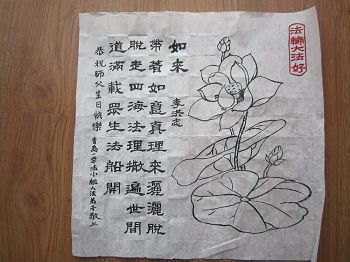 法輪大法好
如來
李洪志
帶著如意真理來灑灑脫
脫走四海法理撒遍世間
道滿載眾生法船開
恭祝師父生日快樂
青島一學法小組大法弟子敬上